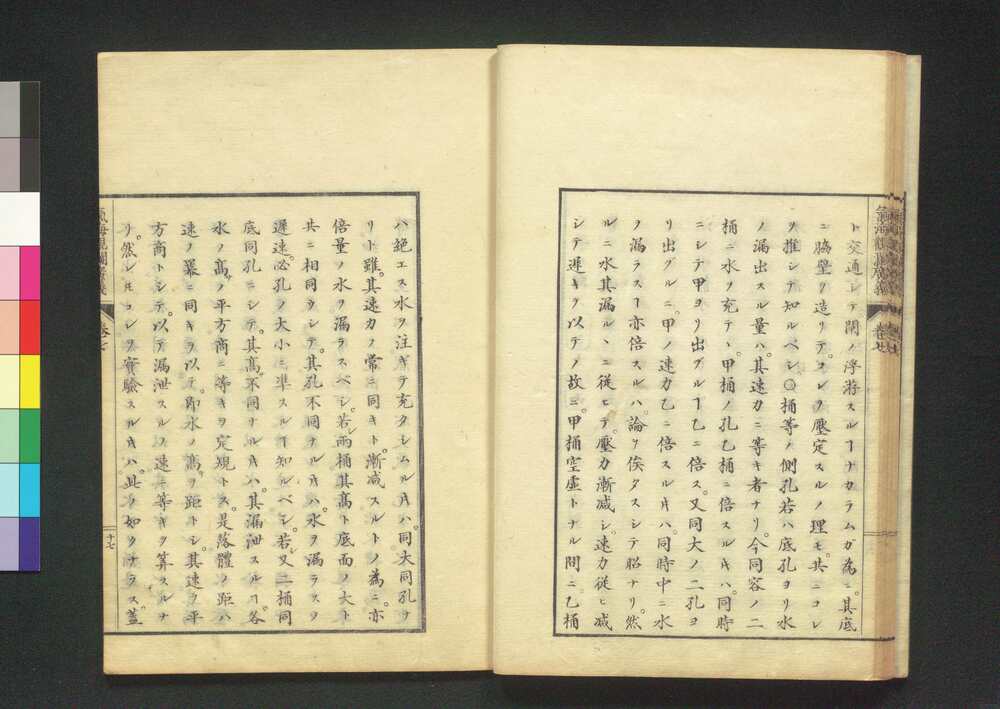 ト交通シテ閒ノ浮游スルヿナカラムガ為ニ。其底
ニ脇壁ヲ造リテ。コレヲ壓定スルノ理モ。共ニコレ
ヲ推シテ知ルベシ〇桶等ノ側孔若ハ底孔ヨリ水
ノ漏出スル量ハ。其速力ニ等キ者ナリ。今同容ノ二
桶ニ水ヲ充テ、甲桶ノ孔乙桶ニ倍スルキハ。同時
ニシテ甲ヨリ出ヅルヿ乙ニ倍ス。又同大ノ二孔ヨ
リ出グルニ。甲ノ速力乙ニ倍スル片ハ。同時中ニ水
ノ漏ラスヿ亦倍スルハ。論ヲ俟タスシテ昭ナリ。然
ルニ水其漏ル、ニ従ヒテ。壓力漸減シ。速力従ヒ減
シテ遅キヲ以テノ故ニ。甲桶空虚トナル間ニ。乙桶
氣海觀瀾廣義
卷七
十七
ハ絶エス水ヲ注ギテ充タシムル片ハ。同大同孔ナ
リト雖。其速力ノ常ニ同キト。漸減スルトノ為ニ。亦
倍量ノ水ヲ漏ラスベシ。若シ兩桶其髙ト底面ノ大ト
共ニ相同ウシテ。其孔不同ナル片ハ。水ヲ漏ラスヿ
遲速。必孔ノ大小ニ準スルヿ知ルベシ。若シ又二桶同
底同孔ニシテ。其髙不同ナル片ハ。其漏泄スルヿ各
水ノ髙サノ平方商ニ等キヲ定規トス。是落體ノ距ハ
速ノ羃ニ同キヲ以テ。即水ノ髙ヲ距トシ。其速ヲ平
方商トシテ。以テ漏泄スルノ速ニ等キヲ算スルナ
リ。然レ𪜈コレヲ實驗スル片ハ。此ノ如クナラス。蓋